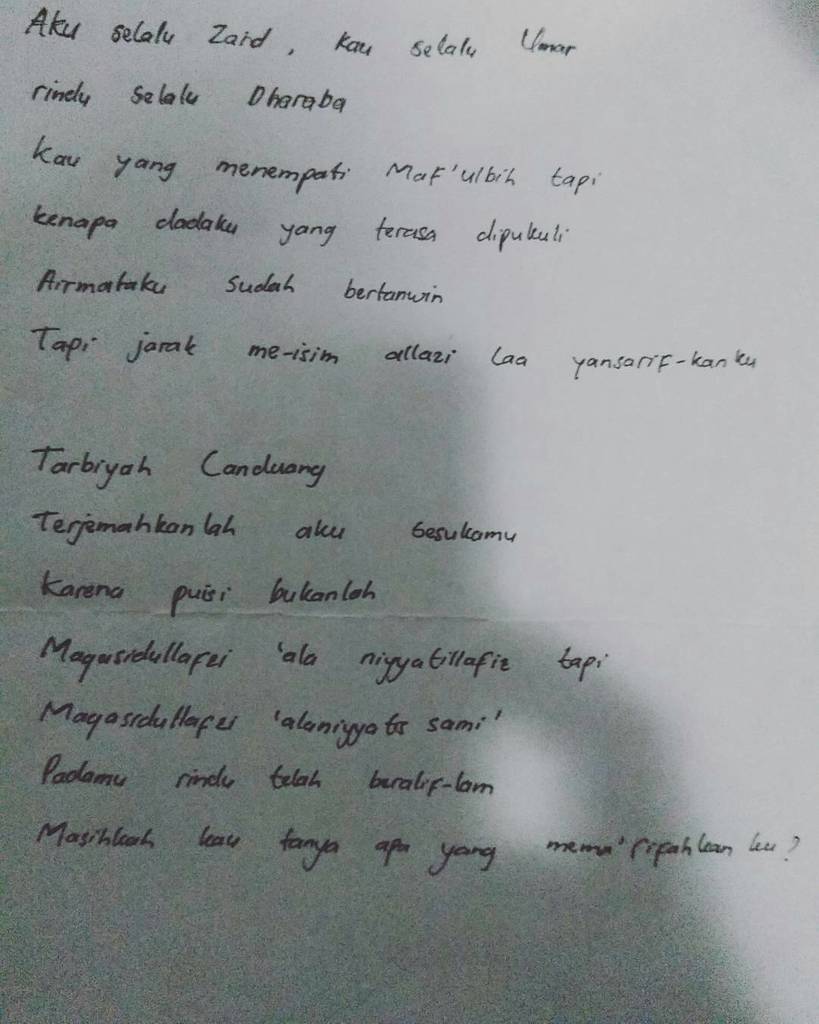 Aku selalu Zaid, kau selalu Umar
rindu selalu Dharaba
Kau yang menempati Maf'ulbih tapi
kenapa dadaku yang terasa dipukuli
Airmataku sudah bertanwin
Tapi jarak me-isim allazi laa yansarif-kanku
Tarbiyah Canduang
Terjemahkanlah aku sesukamu
Karena puisi bukanlah
Maqasidullafzi 'ala niyyatillafiz tapi
Maqasidullafzi 'alaniyyatis sami'
Padamu rindu telah beralif-lam
Masihkah kau tanya apa yang mema'rifahkan ku?